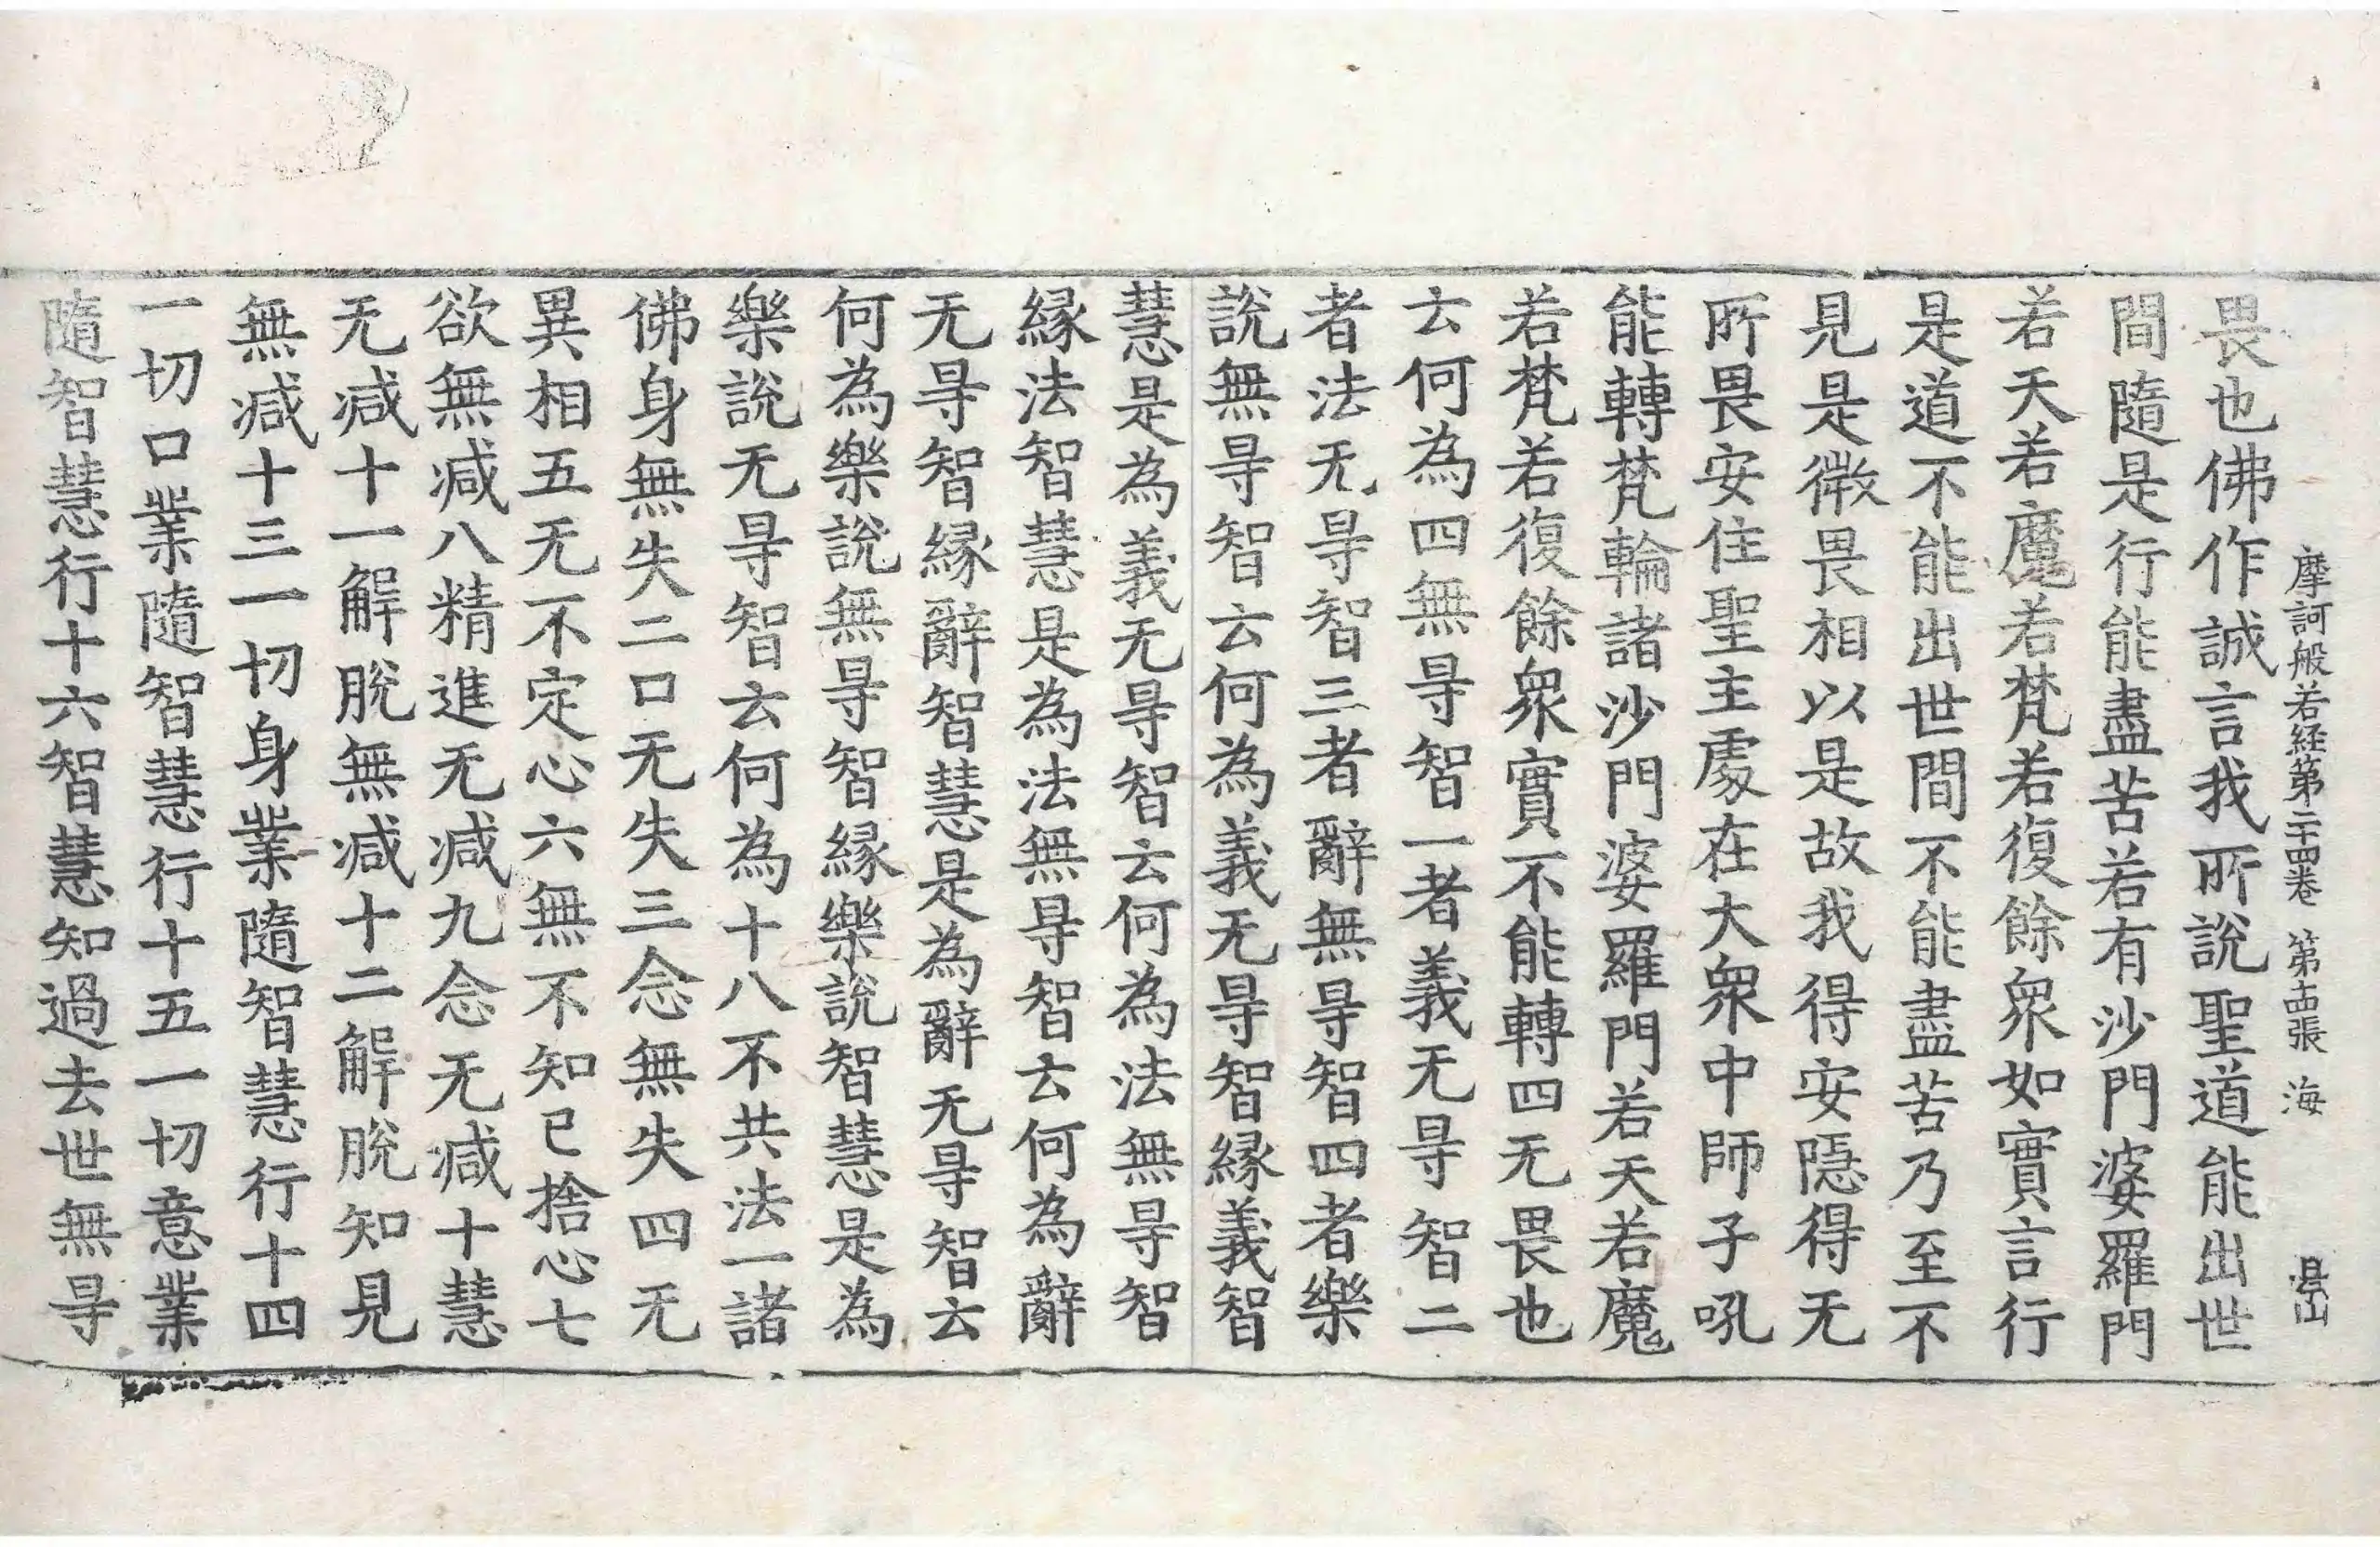 摩訶般若経第二十四卷 第十四張 海
畏也佛作誠言我所說聖道能出世
間隨是行能盡苦若有沙門婆羅門
若天若魔若梵若復餘衆如實言行
是道不能出世間不能盡苦乃至不
見是微畏相以是故我得安隱得无
所畏安住聖主處在大衆中師子吼
能轉梵輪諸沙門婆羅門若天若魔
若梵若復餘衆實不能轉四无畏也
云何為四無㝵智一者義无㝵智二
者法无㝵智三者辭無㝵智四者樂
說無㝵智云何為義无㝵智緣義智
慧是為義无㝵智云何為法無㝵智
緣法智慧是為法無㝵智云何為辭
无㝵智緣辭智慧是為辭无㝵智云
何為樂說無㝵智緣樂說智慧是為
樂說无㝵智云何為十八不共法一諸
佛身無失二口无失三念無失四无
異相五无不定心六無不知已捨心七
欲無减八精進无减九念无减十慧
无减十一解脫無减十二解脫知見
無减十三一切身業隨智慧行十四
一切口業隨智慧行十五一切意業
隨智慧行十六智慧知過去世無㝵